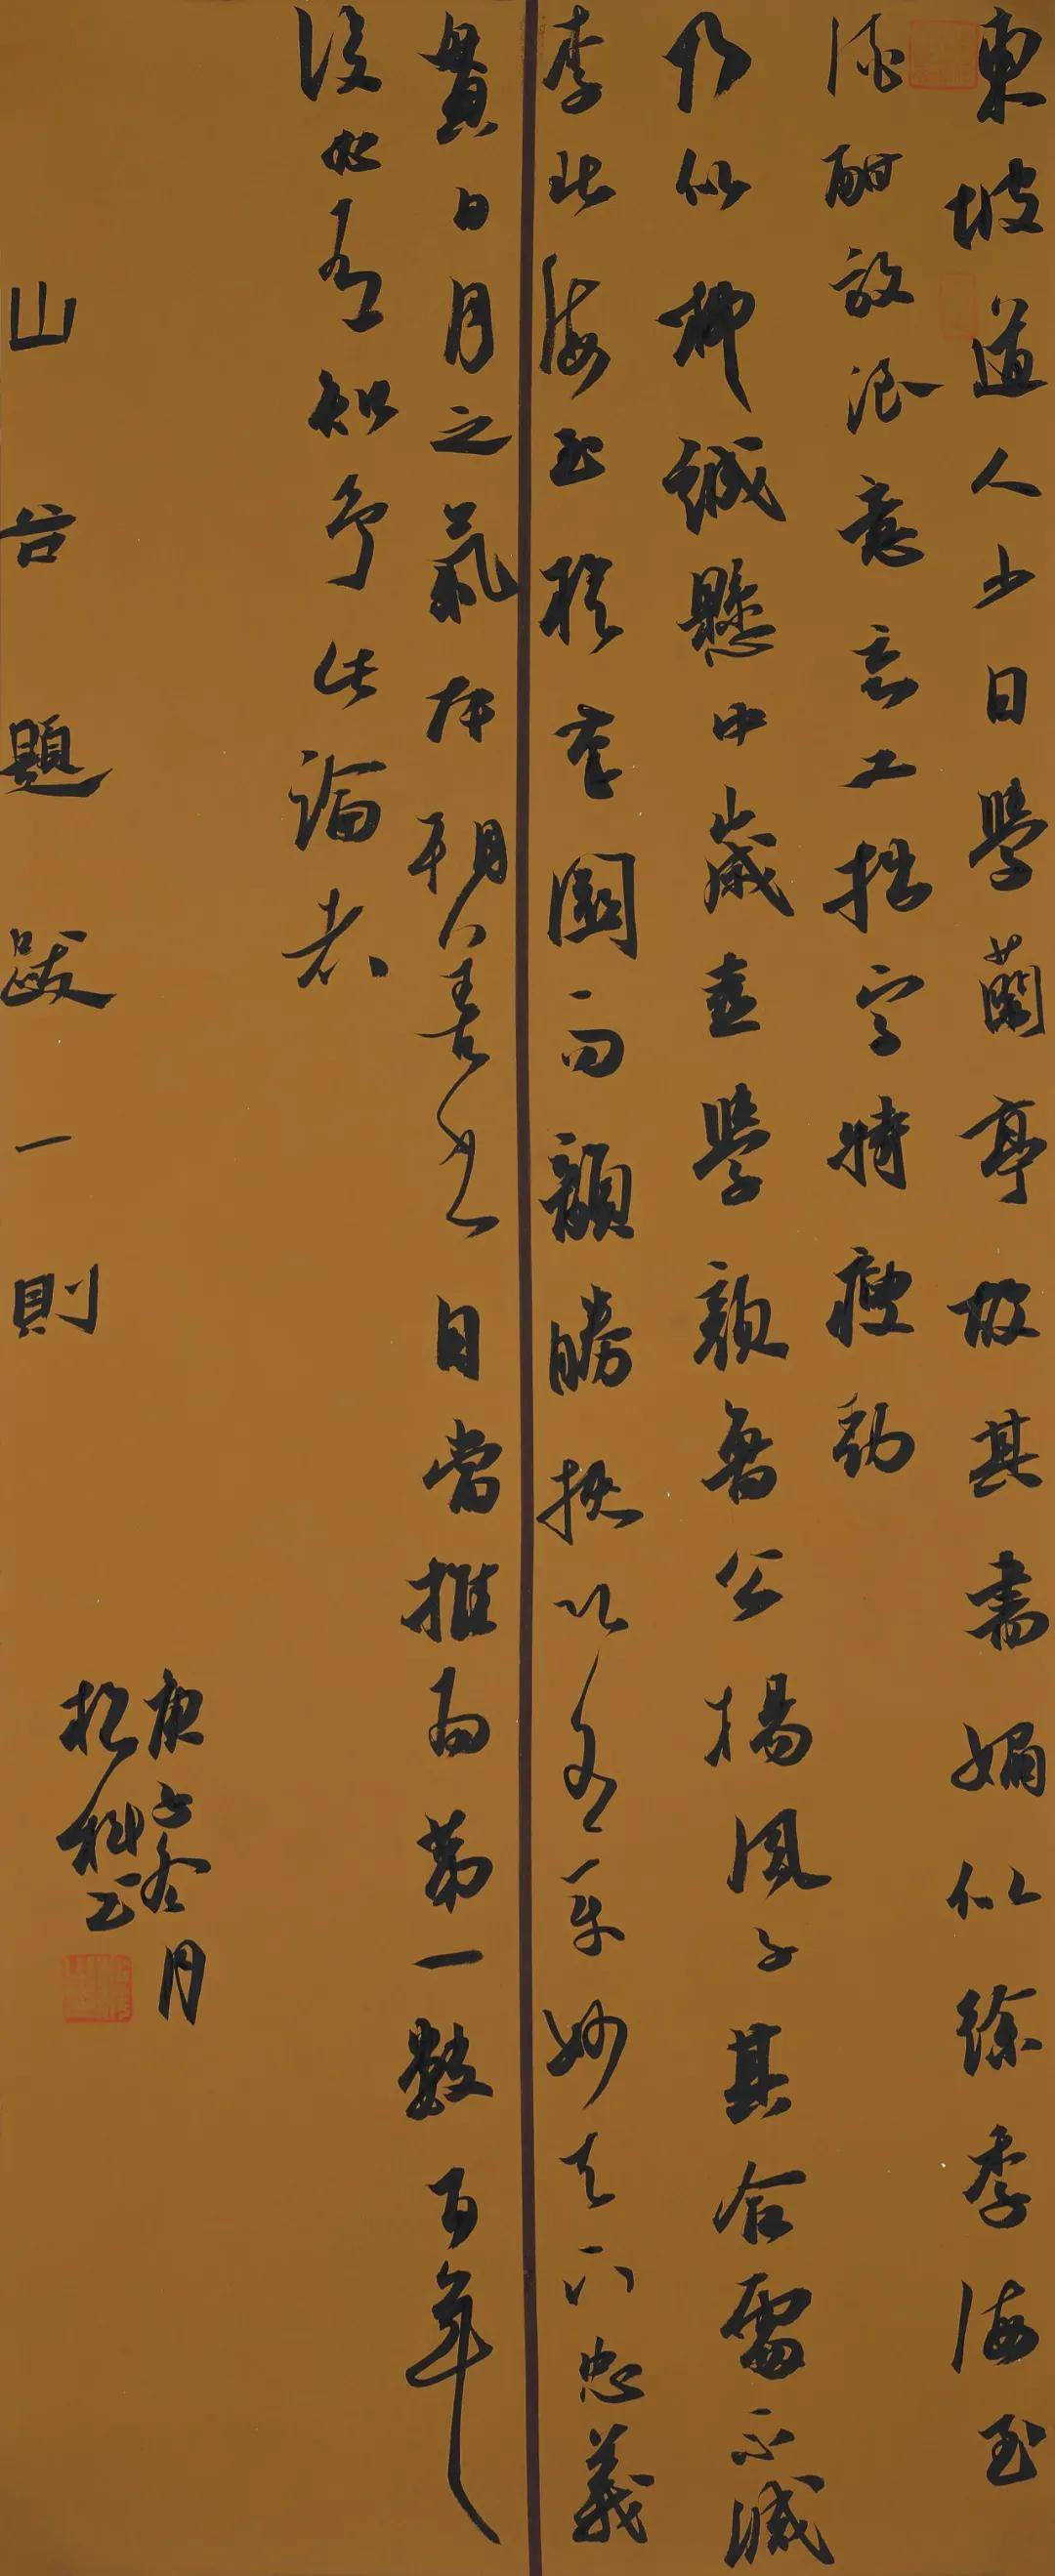 東坡道人少日學蘭亭故其書媚似徐季海至
酒酣放浪意忘工拙字特瘦勁
乃似柳誠懸中歲喜學顏魯公楊風子其合處不減
李北海至於筆圓而韻勝挾以文章妙天下忠義
貫日月之氣本朝善書自當推為第一數百年
後必有知予此論者
山谷題跋一則
庚子冬月
松